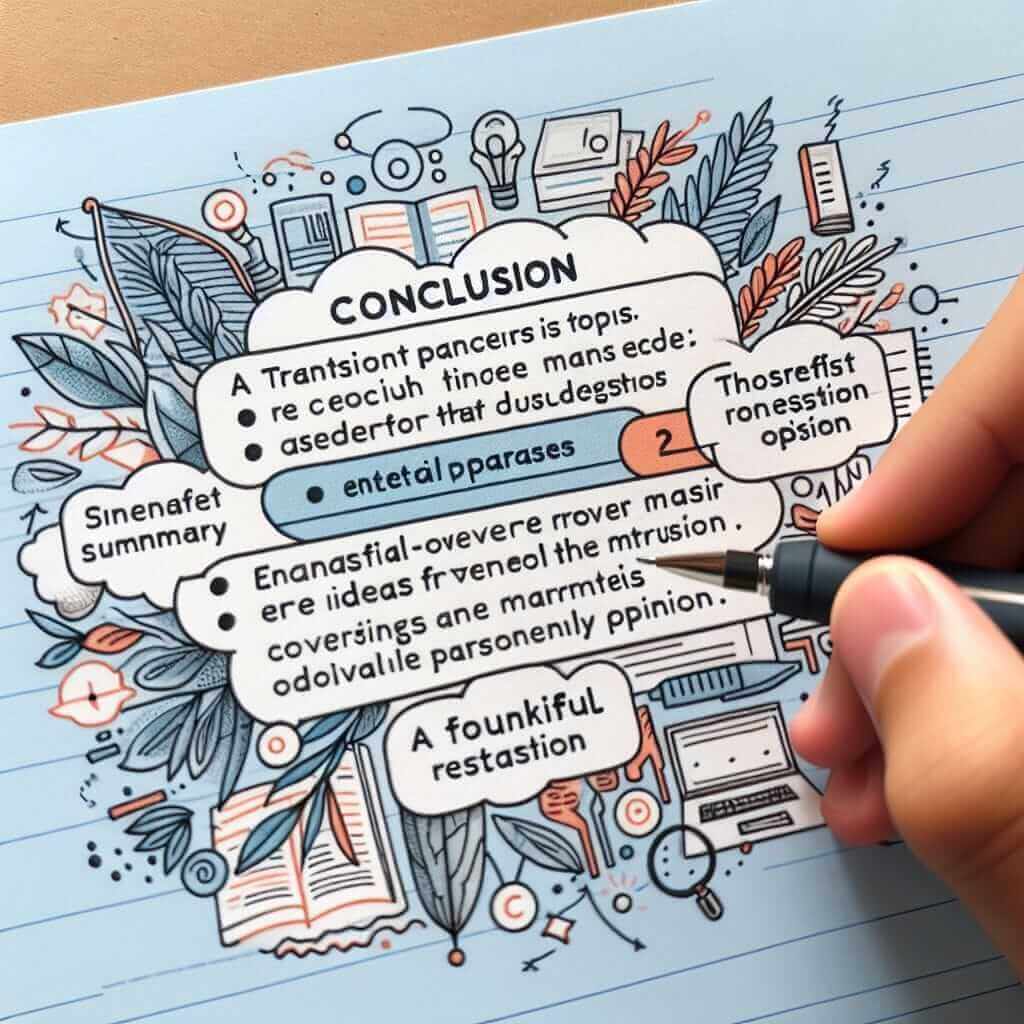 CONCLUSION
A Trantsiont pancers is topıs.
• re ceociuh tinoee mans ecde:
• asederfor that dusudegstıos
• entetail pparases
2
Thosrefist
ronesstion
opsion
Sinenafet
summmary
• Enanasfial-ovevere rrover masir
• ere iideas frveneol the mtrusion.
coversings ane marrmteis
odoivalile parsonenily ppinion.
A founkiful
restastion
C